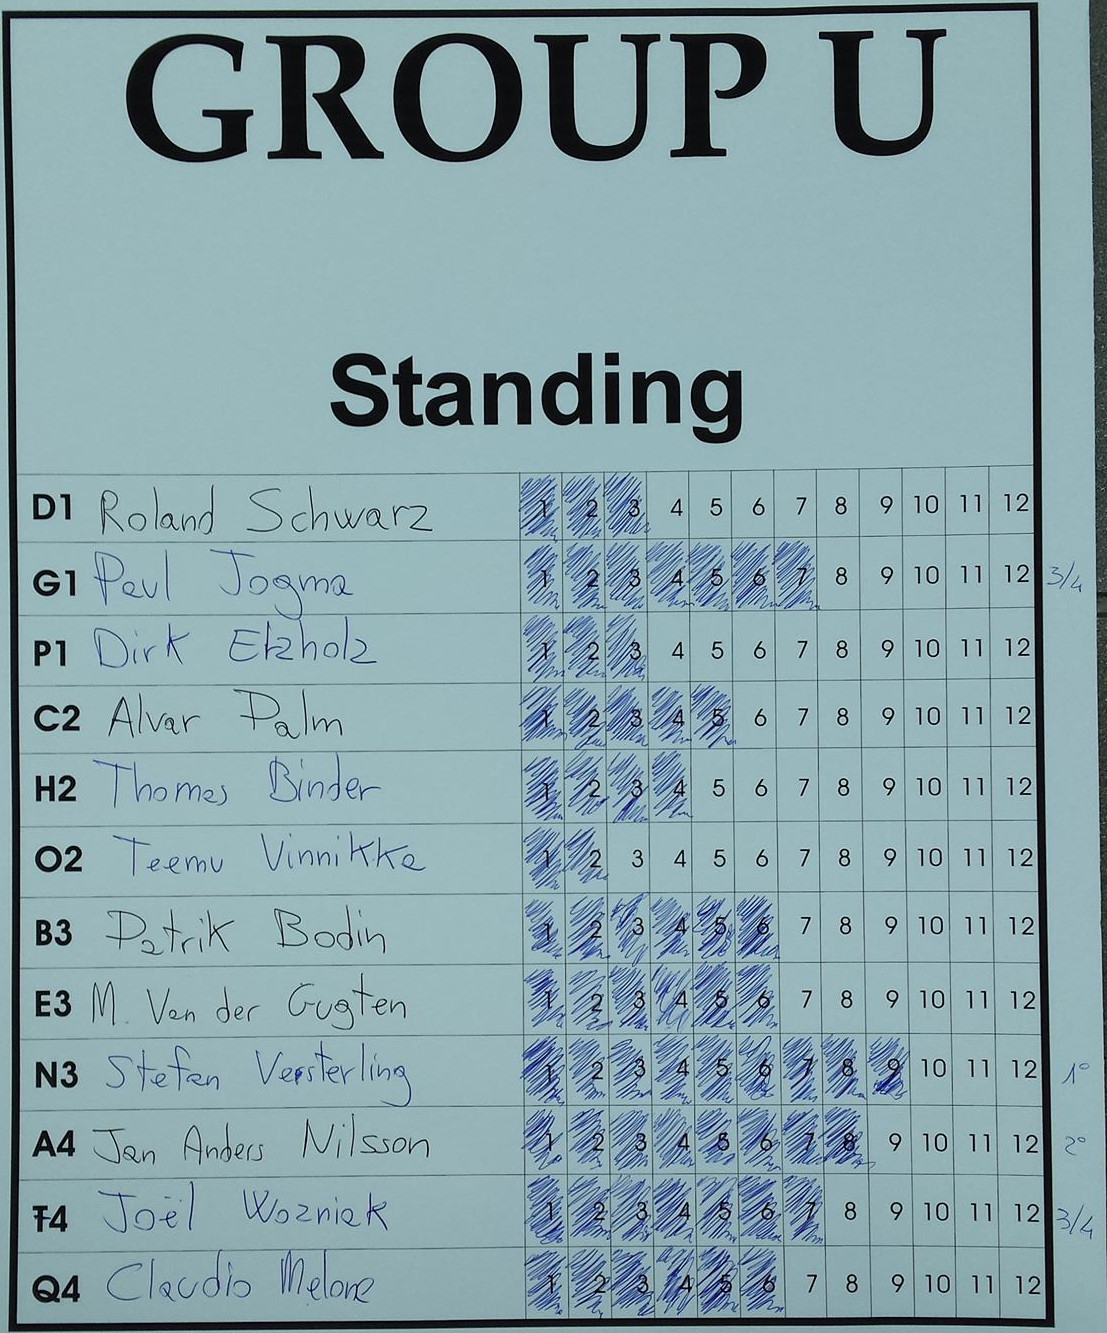 GROUP U
Standing
D1 Roland Schwarz 1 2 3 4 5 6 7 8 9 10 11 12
G1 Paul Jogma 1 2 3 4 5 6 7 8 9 10 11 12 3/4
P1 Dirk Elzholz 1 2 3 4 5 6 7 8 9 10 11 12
C2 Alvar Palm 1 2 3 4 5 6 7 8 9 10 11 12
H2 Thomas Binder 1 2 3 4 5 6 7 8 9 10 11 12
O2 Teemu Vinnikka 1 2 3 4 5 6 7 8 9 10 11 12
B3 Patrik Bodin 1 2 3 4 5 6 7 8 9 10 11 12
E3 M. Van der Gugten 1 2 3 4 5 6 7 8 9 10 11 12
N3 Stefan Vesterling 1 2 3 4 5 6 7 8 9 10 11 12 1°
A4 Jan Anders Nilsson 1 2 3 4 5 6 7 8 9 10 11 12 2°
T4 Joël Wozniak 1 2 3 4 5 6 7 8 9 10 11 12 3/4
Q4 Claudio Melone 1 2 3 4 5 6 7 8 9 10 11 12